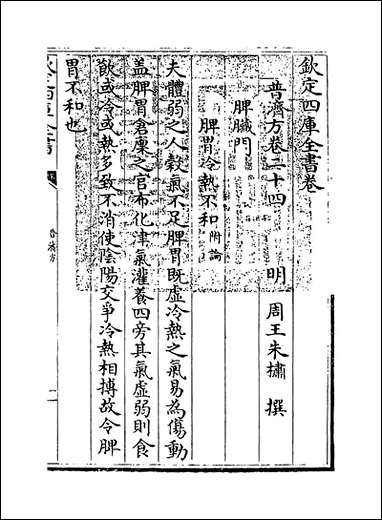 欽定四庫全書卷
普濟方卷二十四 明 周王朱橚 撰
脾臟門
脾胃冷熱不和附論
夫體弱之人穀氣不足脾胃既虛冷熱之氣易為傷動
蓋脾胃倉廩之官布化津氣灌養四旁其氣虛弱則食
飲或冷或熱多致不消使陰陽交爭冷熱相搏故令脾
胃不和也
普濟方